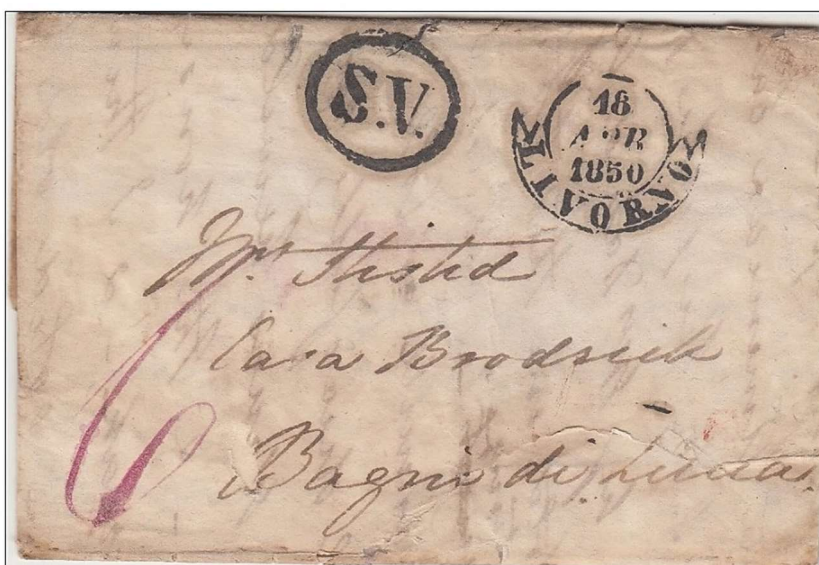 S.V.
18
APR
1850
LIVORNO
Mrs Stisted
Casa Brodrick
Bagni di Lucca
6